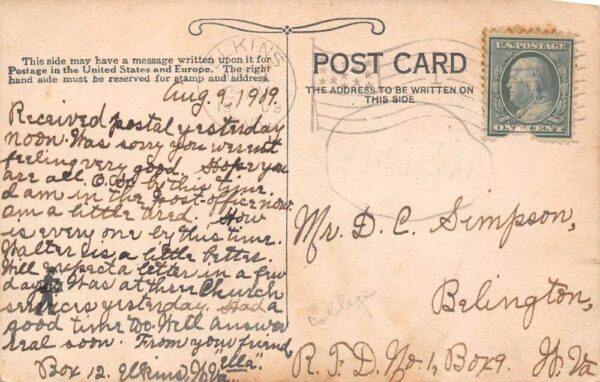 This side may have a message written upon it for
Postage in the United States and Europe. The right
hand side must be reserved for stamp and address.
Aug. 9. 1909.
Received postal yesterday
noon. Was sorry you weren't
feeling very good. Hope you
are all. O.K. by this time.
I am in the Post-office now
am a little tired. How
is every one by this time.
Walter is a little better.
Will expect a letter in a few
days. Was at three Church
services yesterday. Had a
good time too. Will answer
real soon. From your friend,
"Ella".
Box 12. Elkins, W. Va.
ELKINS
POST CARD
THE ADDRESS TO BE WRITTEN ON
THIS SIDE
U.S. POSTAGE
ONE CENT
Mr. D. C. Simpson,
Belington,
College
R. F. D. No. 1, Box 9. W. Va